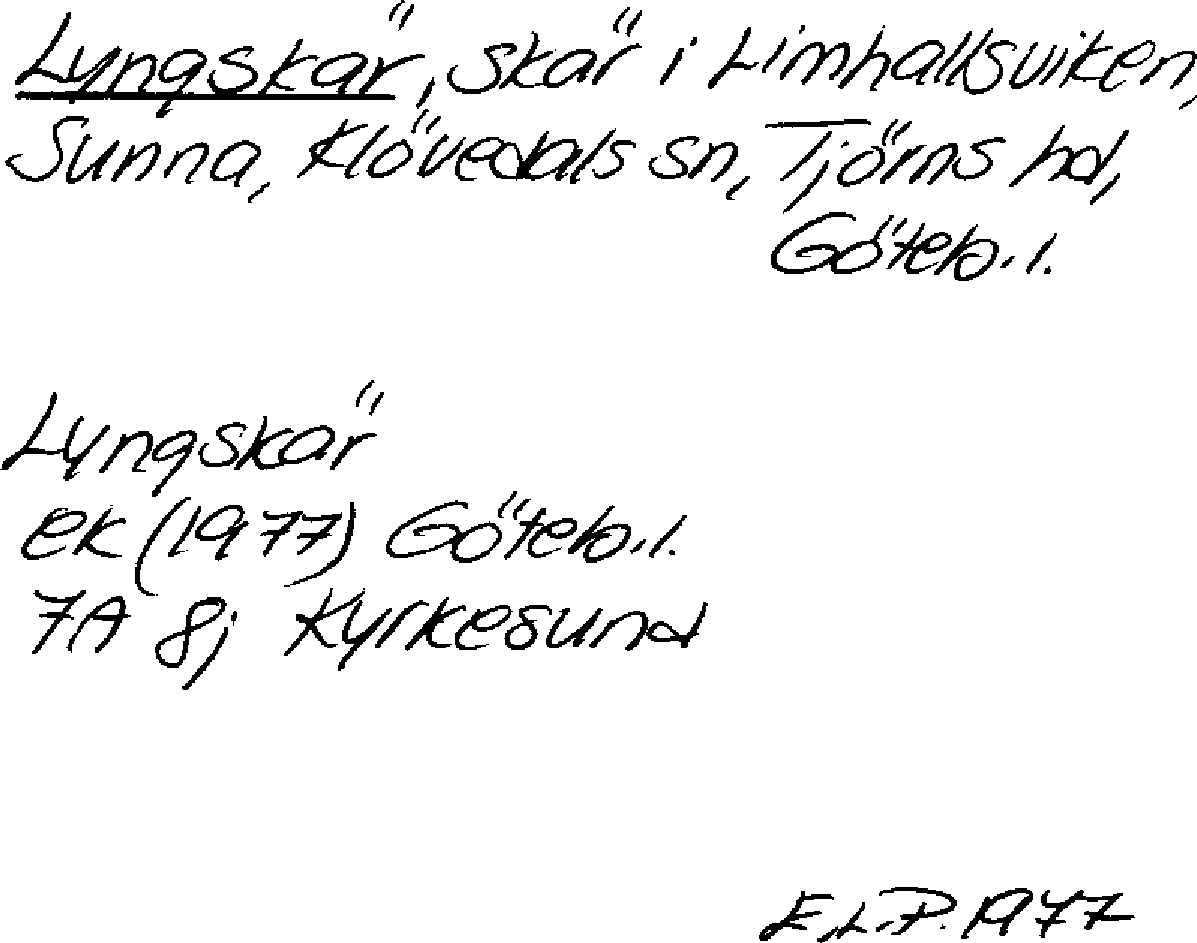 Lyngskär, skär i Limhallsviken,
Sunna, Klövedals sn, Tjörns hd,
Göteb. l.
Lyngskär
ek (1977) Göteb. l.
7A 8j Kyrkesund
E.L.P. 1977